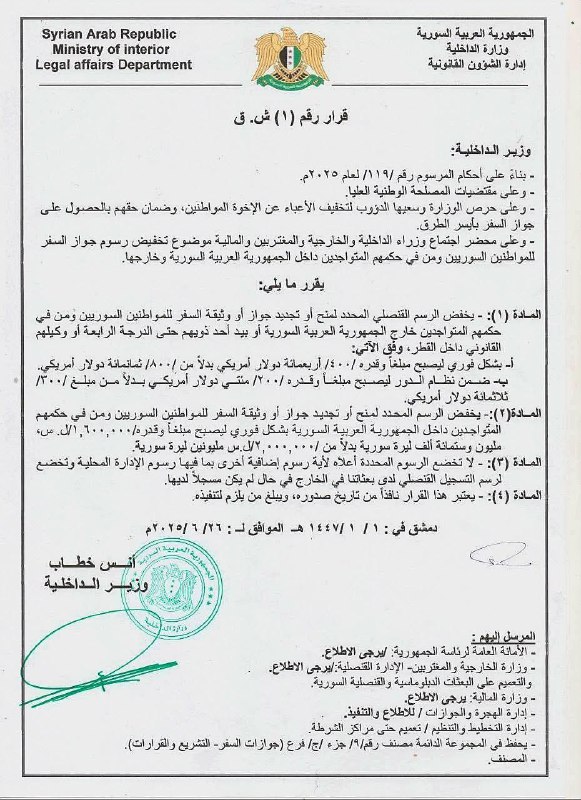 Syrian Arab Republic
Ministry of interior
Legal affairs Department
الجمهورية العربية السورية
وزارة الداخلية
إدارة الشؤون القانونية
قرار رقم (١) ش. ق
وزير الداخلية:
- بناءً على أحكام المرسوم رقم /١١٩/ لعام ٢٠٢٥م.
- وعلى مقتضيات المصلحة الوطنية العليا.
- وعلى حرص الوزارة وسعيها الدؤوب لتخفيف الأعباء عن الإخوة المواطنين، وضمان حقهم بالحصول على
جواز السفر بأيسر الطرق.
- وعلى محضر اجتماع وزراء الداخلية والخارجية والمغتربين والمالية موضوع تخفيض رسوم جواز السفر
للمواطنين السوريين ومن في حكمهم المتواجدين داخل الجمهورية العربية السورية وخارجها.
يقرر ما يلي:
المادة (١): - يخفض الرسم القنصلي المحدد لمنح أو تجديد جواز أو وثيقة السفر للمواطنين السوريين ومن في
حكمهم المتواجدين خارج الجمهورية العربية السورية أو بيد أحد ذويهم حتى الدرجة الرابعة أو وكيلهم
القانوني داخل القطر، وفق الآتي:
أ- بشكل فوري ليصبح مبلغاً وقدره /٤٠٠/ أربعمائة دولار أمريكي بدلاً من /٨٠٠/ ثمانمائة دولار أمريكي.
ب- ضمن نظام الدور ليصبح مبلغاً وقدره /٢٠٠/ مئتي دولار أمريكي بدلاً من مبلغ /٣٠٠/
ثلاثمائة دولار أمريكي.
المادة(٢): - يخفض الرسم المحدد لمنح أو تجديد جواز أو وثيقة السفر للمواطنين السوريين ومن في حكمهم
المتواجدين داخل الجمهورية العربية السورية بشكل فوري ليصبح مبلغاً وقدره/١,٦٠٠,٠٠٠/ل. س،
مليون وستمائة ألف ليرة سورية بدلاً من /٢,٠٠٠,٠٠٠/ل.س مليونين ليرة سورية.
المادة (٣): - لا تخضع الرسوم المحددة أعلاه لأية رسوم إضافية أخرى بما فيها رسوم الإدارة المحلية وتخضع
لرسم التسجيل القنصلي لدى بعثاتنا في الخارج في حال لم يكن مسجلاً لديها.
المادة (٤): - يعتبر هذا القرار نافذاً من تاريخ صدوره، ويبلغ من يلزم لتنفيذه.
دمشق في : ١ / ١ / ١٤٤٧ هـ الموافق لـ : ٢٦ /٦ /٢٠٢٥م
أنس خطاب
وزير الداخلية
الجمهورية العربية السورية
وزارة الداخلية
المرسل إليهم :
- الأمانة العامة لرئاسة الجمهورية: /يرجى الاطلاع.
- وزارة الخارجية والمغتربين- الإدارة القنصلية:/يرجى الاطلاع.
والتعميم على البعثات الدبلوماسية والقنصلية السورية.
- وزارة المالية: يرجى الاطلاع.
- إدارة الهجرة والجوازات / للاطلاع والتنفيذ.
- إدارة التخطيط والتنظيم / تعميم حتى مراكز الشرطة.
- يحفظ في المجموعة الدائمة مصنف رقم/٩/ جزء /ج/ فرع (جوازات السفر- التشريع والقرارات).
- المصنف.